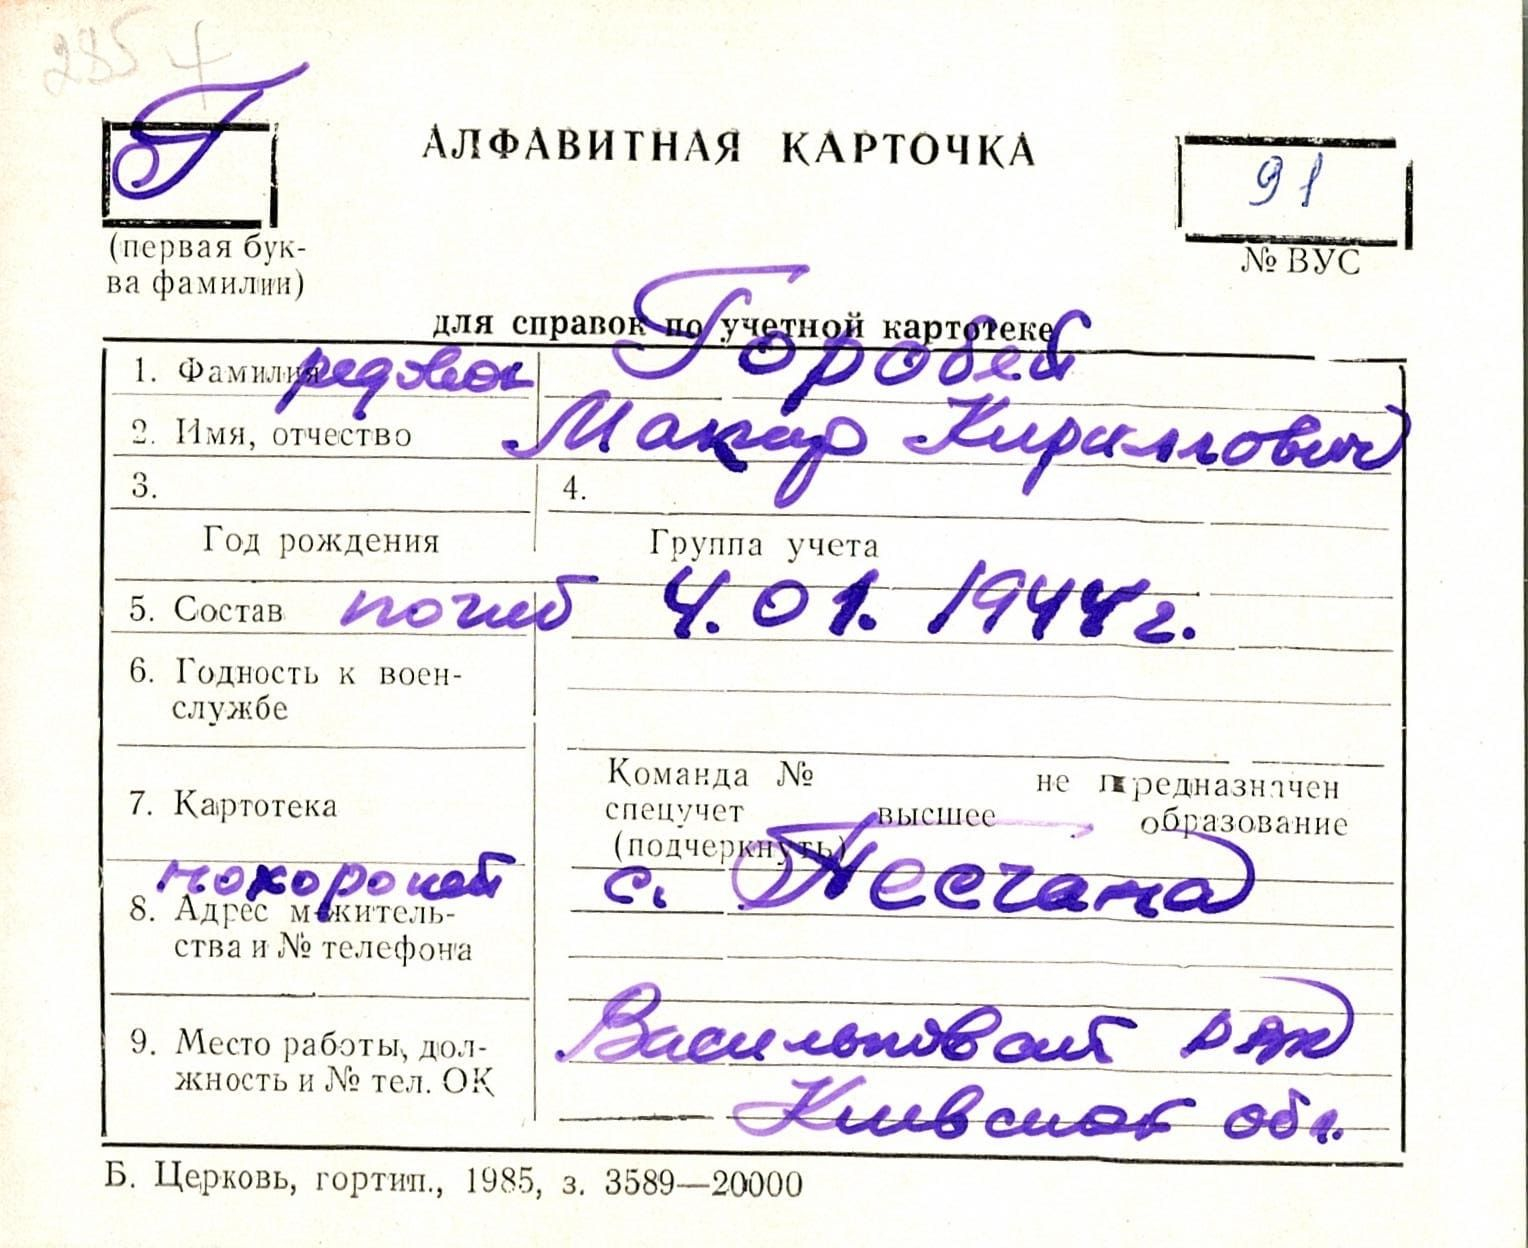 285 4
Г
АЛФАВИТНАЯ КАРТОЧКА
91
(первая бук-
ва фамилии)
№ ВУС
для справок по учетной картотеке
1. Фамилия рядовой Горобей
2. Имя, отчество Макар Кириллович
3. 4.
Год рождения Группа учета
5. Состав погиб 4.01.1944г.
6. Годность к воен-
службе
7. Картотека
Команда № не предназначен
спецучет высшее образование
(подчеркнуть)
похоронен с. Песчана
8. Адрес м житель-
ства и № телефона
9. Место работы, дол-
жность и № тел. ОК
Васильковский р-н
Киевской обл.
Б. Церковь, гортип., 1985, з. 3589—20000